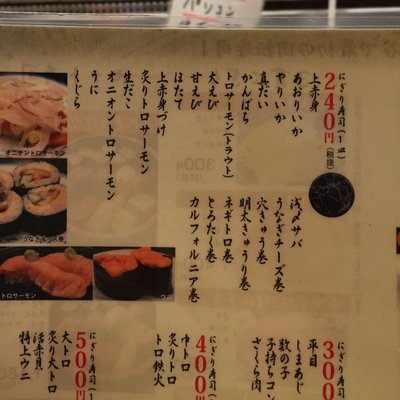 にぎり寿司(1皿)
240円(税抜)
上赤身
あおりいか
やりいか
真だい
かんぱち
トロサーモン(トラウト)
大えび
甘えび
ほたて
上赤身づけ
炙りトロサーモン
生だこ
オニオントロサーモン
うに
くじら
浅〆サバ
うなぎチーズ巻
穴きゅう巻
明太きゅうり巻
ネギトロ巻
とろたく巻
カルフォルニア巻
オニオントロサーモン
トロサーモン
にぎり寿司(1
300
平目
しまあじ
数の子
子持ちコン
さくら肉
にぎり寿司(1
400円
中トロ
炙りトロ
トロ鉄火
にぎり寿司(1
500円
大トロ
炙り大トロ
活赤貝
特上ウニ